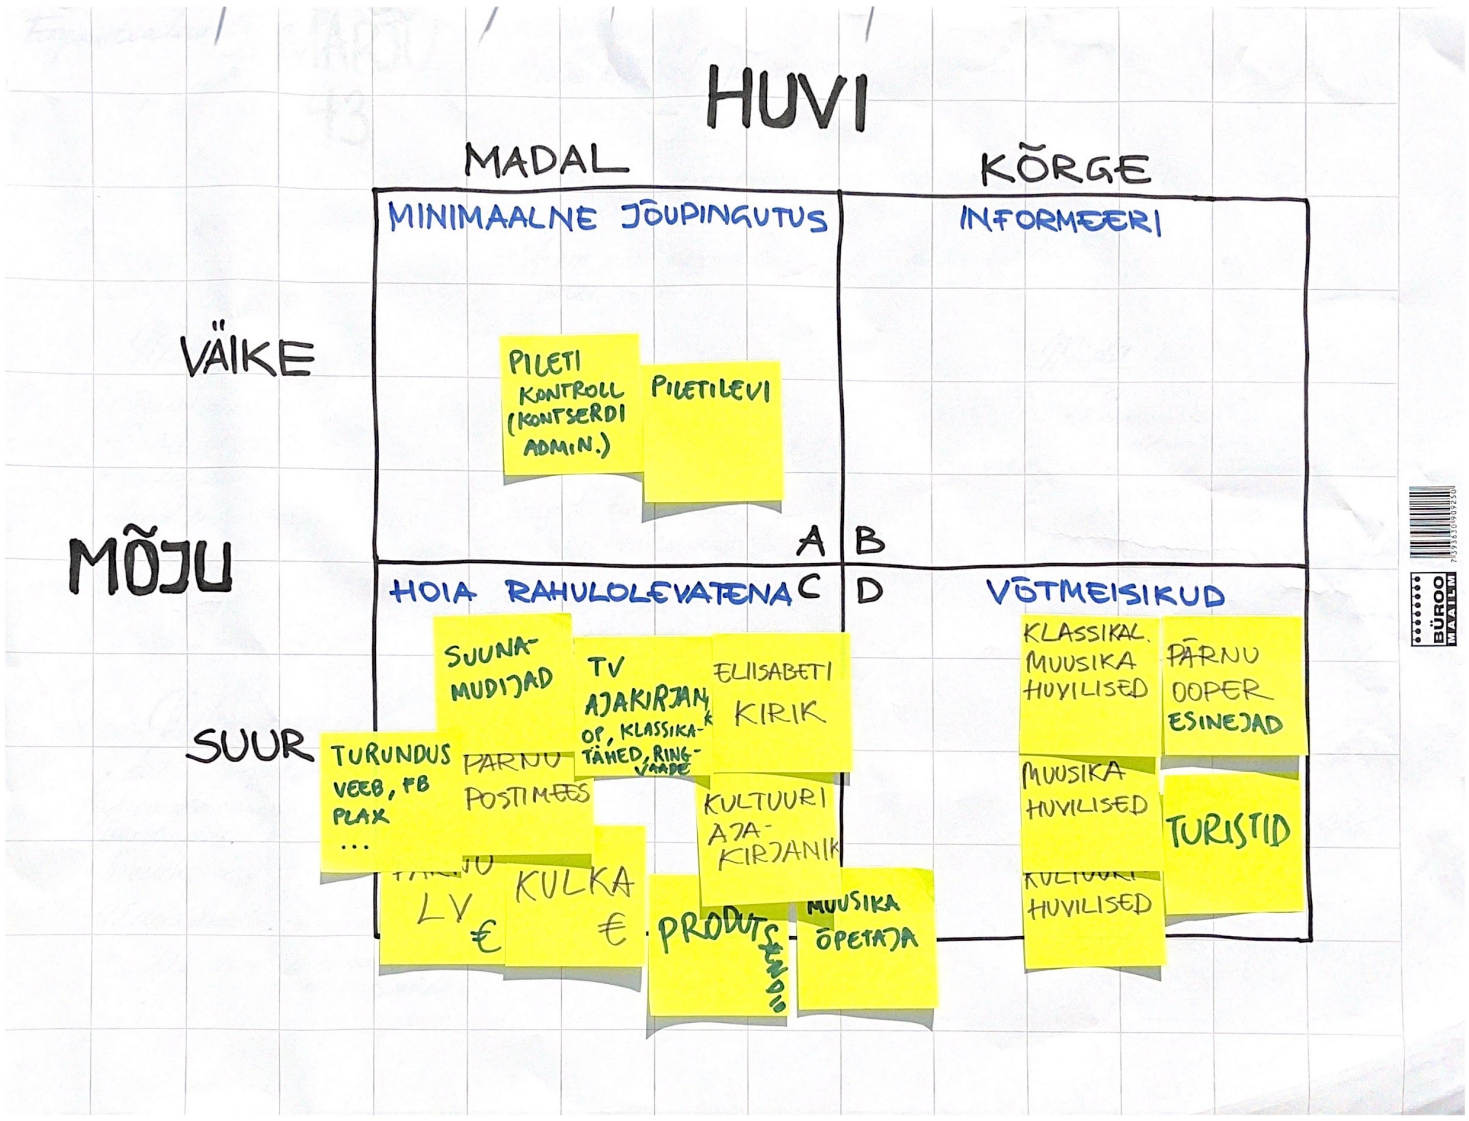 HUVI
MADAL
KÕRGE
MINIMAALNE JÕUPINGUTUS
INFORMEERI
VÄIKE
PILETI
KONTROLL
(KONTSERDI
ADMIN.)
PILETILEVI
A
B
MÕJU
HOIA RAHULOLEVATENA
C
D
VÕTMEISIKUD
SUUR
SUUNA-
MUDIJAD
TV
AJAKIRJAN
K
OP, KLASSIKA-
TÄHED, RING-
VAADE
ELIISABETI
KIRIK
TURUNDUS
VEEB, FB
PLAX
...
PÄRNU
POSTIMEES
KULTUURI
AJA-
KIRJANIK
PÄRNU
LV
€
KULKA
€
PRODUTSENDID
MUUSIKA
ÕPETAJA
KLASSIKAL.
MUUSIKA
HUVILISED
PÄRNU
OOPER
ESINEJAD
MUUSIKA
HUVILISED
TURISTID
KULTUURI
HUVILISED
BÜROO
MAAILM